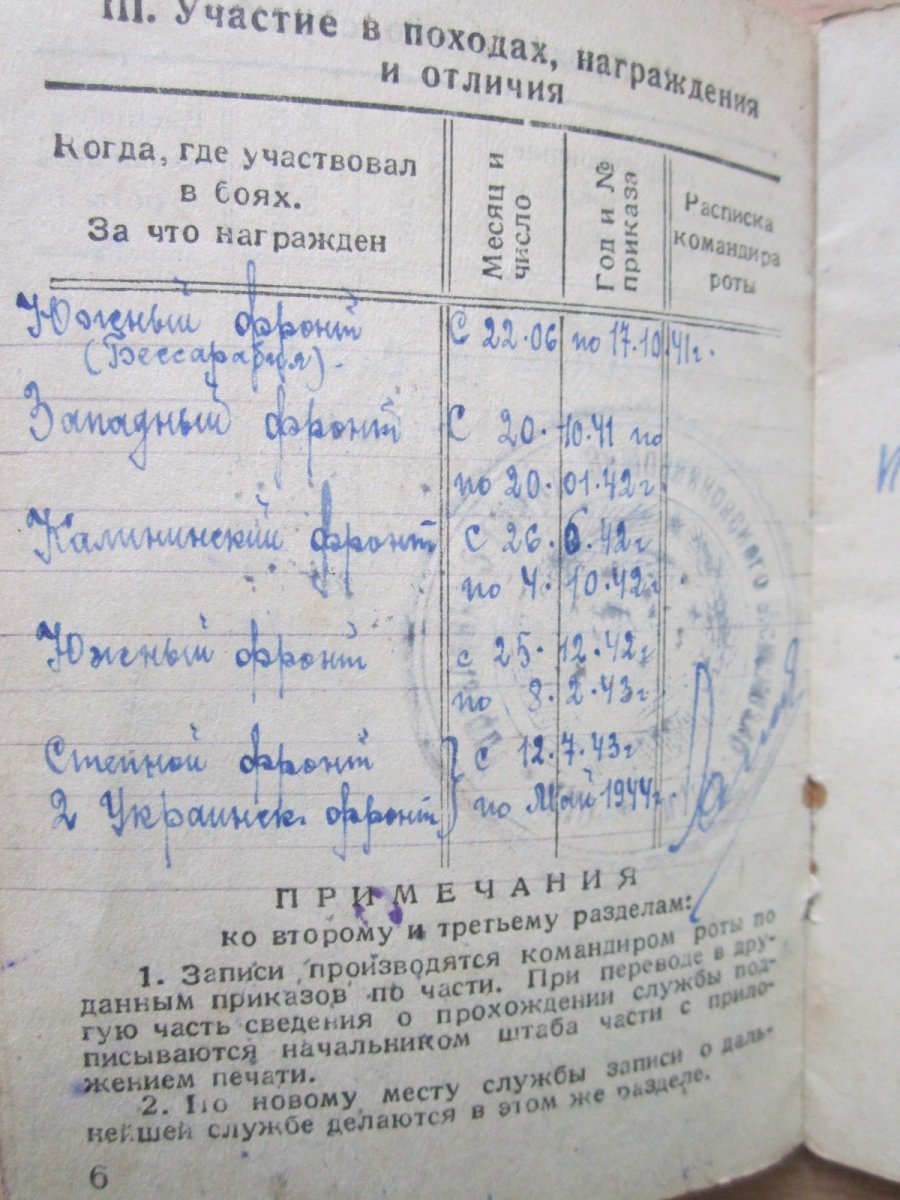 III. Участие в походах, награждения
и отличия
Когда, где участвовал
в боях.
За что награжден
Месяц и
число
Год и №
приказа
Расписка
командира
роты
Южный фронт С 22.06 по 17.10.41г.
(Бессарабия).
Западный фронт С 20.10.41 по
по 20.01.42г.
Калининский фронт с 26.6.42г
по 4.10.42г.
Южный фронт с 25.12.42г
по 8.2.43г
Степной фронт } с 12.7.43г
2 Украинск. фронт } по Май 1944г.
ПРИМЕЧАНИЯ
ко второму и третьему разделам:
1. Записи производятся командиром роты по
данным приказов по части. При переводе в дру-
гую часть сведения о прохождении службы под-
писываются начальником штаба части с прило-
жением печати.
2. По новому месту службы записи о даль-
нейшей службе делаются в этом же разделе.
6